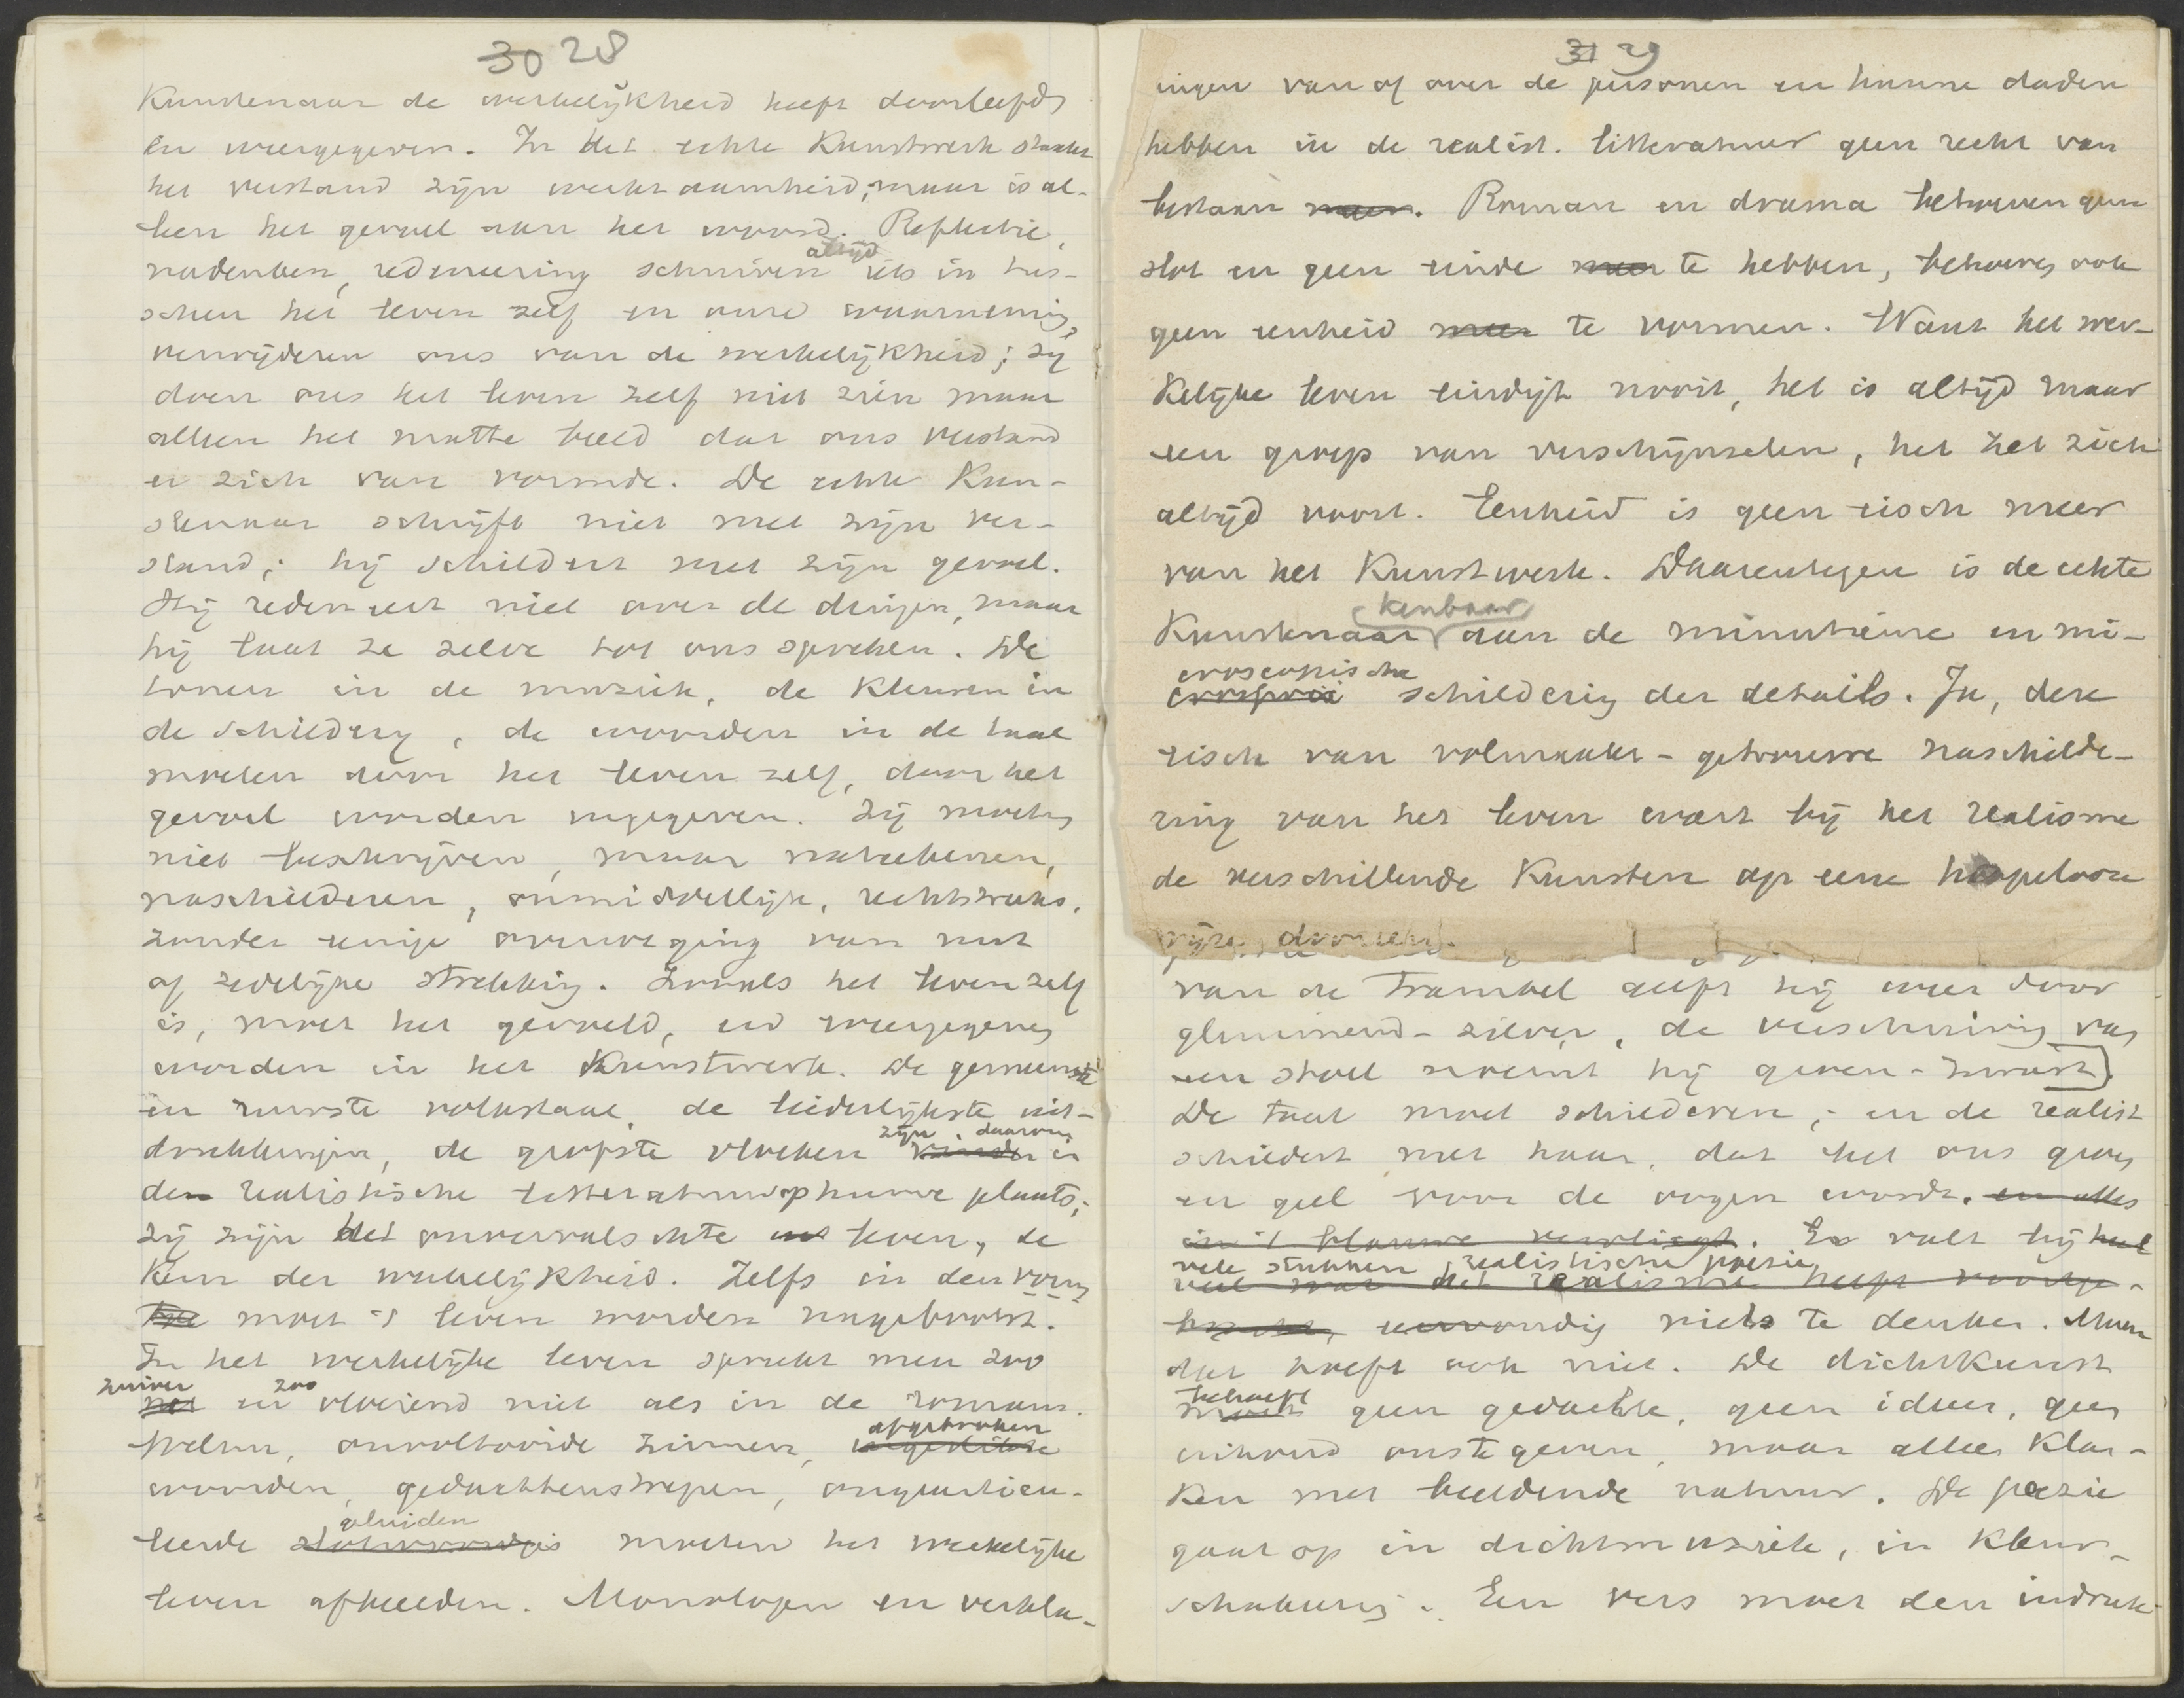 30 28
Kunstenaar de werkelijkheid heeft doorleefd
en weergegeven. In het echte Kunstwerk staakt
het verstand zijn werkzaamheid; maar is al-
leen het gevoel aan het woord. Reflectie,
altijd
nadenken, redeneering schuiven iets in tus-
schen het leven zelf en onze waarneming,
verwijderen ons van de werkelijkheid; zij
doen ons het leven zelf niet zien maar
alleen het matte beeld dat ons verstand
er zich van vormde. De echte Kun-
stenaar schrijft niet met zijn ver-
stand; hij schildert met zijn gevoel.
Hij redeneert niet over de dingen, maar
hij laat ze zelve tot ons spreken. De
tonen in de muziek, de kleuren in
de schilderij, de woorden in de taal
moeten door het leven zelf, door het
gevoel worden ingegeven. Zij moeten
niet beschrijven, maar nateekenen,
naschilderen, onmiddellijk, rechtstreeks,
zonder eenige overweging van nut
of zedelijke strekking. Zooals het leven zelf
is, moet het gevoeld, en weergegeven
worden in het Kunstwerk. De gemeenste
en ruwste volkstaal, de liederlijkste uit-
zijn daarom
drukkingen, de grofste vloeken vinden in
de realistische litteratuur op hunne plaats;
zij zijn het onvervalschte leven, de
Kern der werkelijkheid. Zelfs in den vorm
moet 't leven worden nagebootst.
In het werkelijke leven spreekt men zoo
zuiver zoo
net en vloeiend niet als in de romans.
afgebroken
Welnu, onvoltooide zinnen,
woorden, gedachtenstrepen, ongearticu-
geluiden
leerde moeten het werkelijke
leven afbeelden. Monologen en verkla-
31 29
ingen van of over de personen en hunne daden
hebben in de realist. litteratuur geen recht van
bestaan meer. Roman en drama behoeven geen
slot en geen einde meer te hebben, behoeven ook
geen eenheid meer te vormen. Want het wer-
kelijke leven eindigt nooit, het is altijd maar
een groep van verschijnselen, het zet zich
altijd voort. Eenheid is geen eisch meer
van het Kunstwerk. Daarentegen is de echte
kenbaar
Kunstenaar aan de minutieuse en mi-
croscopische
schildering der details. Ja, deze
eisch van volmaakt-getrouwe naschilde-
ring van het leven wort bij het realisme
de verschillende Kunsten op eene hopelooze
wijze dooreen.
van de trambel geeft hij weer door
glimmend-zilver, de verschuiving van
een stoel noemt hij geren-zwart).
De taal moet schilderen; en de realist
schildert met haar, dat het ons groen
en geel voor de oogen wordt, en alles
in 't blauwe vervliegt. Er valt bij heel
vele stukken realistische poesie
veel wat het realisme heeft voortge-
bracht, eenvoudig niets te denken. Maar
dat hoeft ook niet. De dichtkunst
behoeft
moet geen gedachte, geen ideeën, geen
inhoud ons te geven, maar alleen klan-
ken met beeldende natuur. De poezie
gaat op in dichtmuziek, in kleur-
schakeering. Een vers moet den indruk